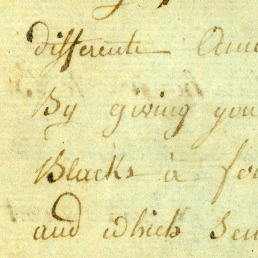 differente
By giving you
Blacks à
and which